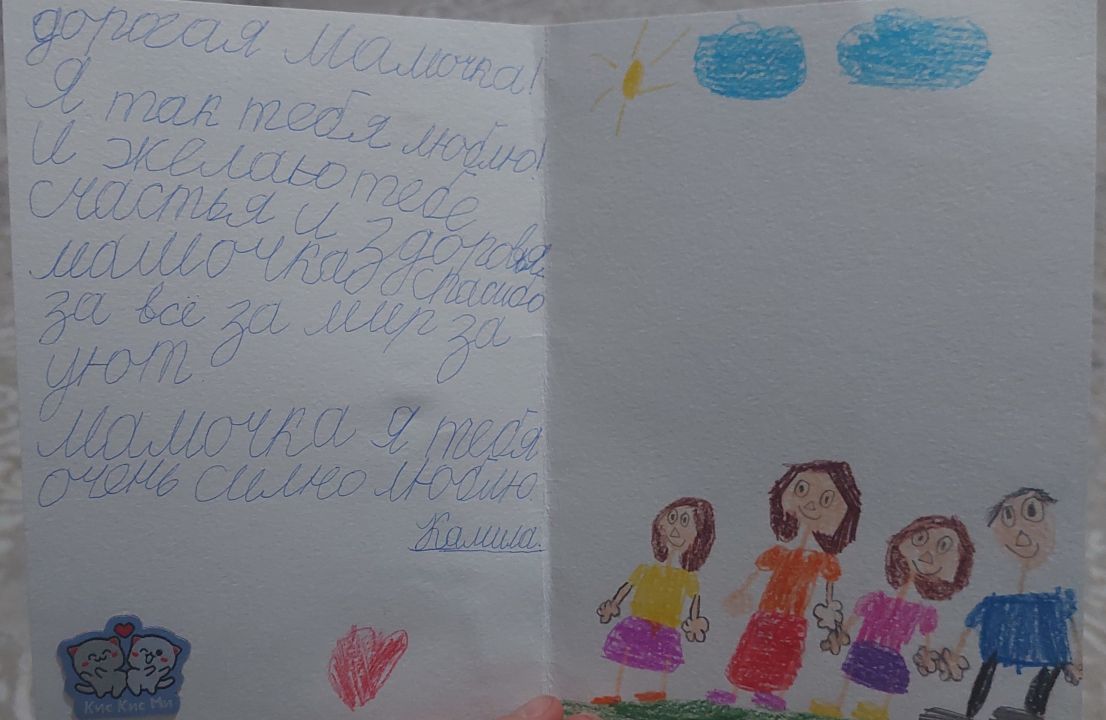 дорогая мамочка!
Я так тебя люблю!
И желаю тебе
счастья и здоровья
мамочка спасибо
за всё за мир за
уют.
мамочка я тебя
очень силно люблю
Камила.
Кис Кис Ми